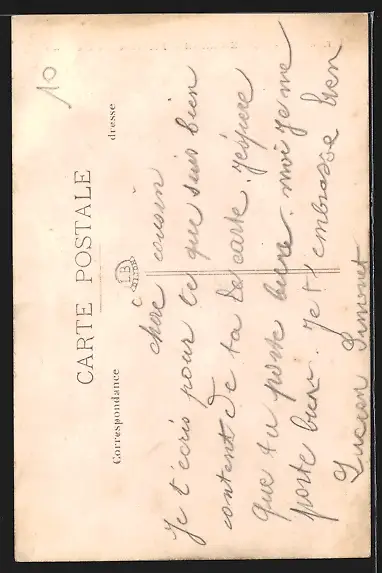 10
CARTE POSTALE
Correspondance
adresse
C LB
chere cousin
Je t'écris pour te que suis bien
content de ta De carte. J'éspere
que tu porte biene. moi je me
porte bien. Je t'embrasse bien
Lucien Simonet